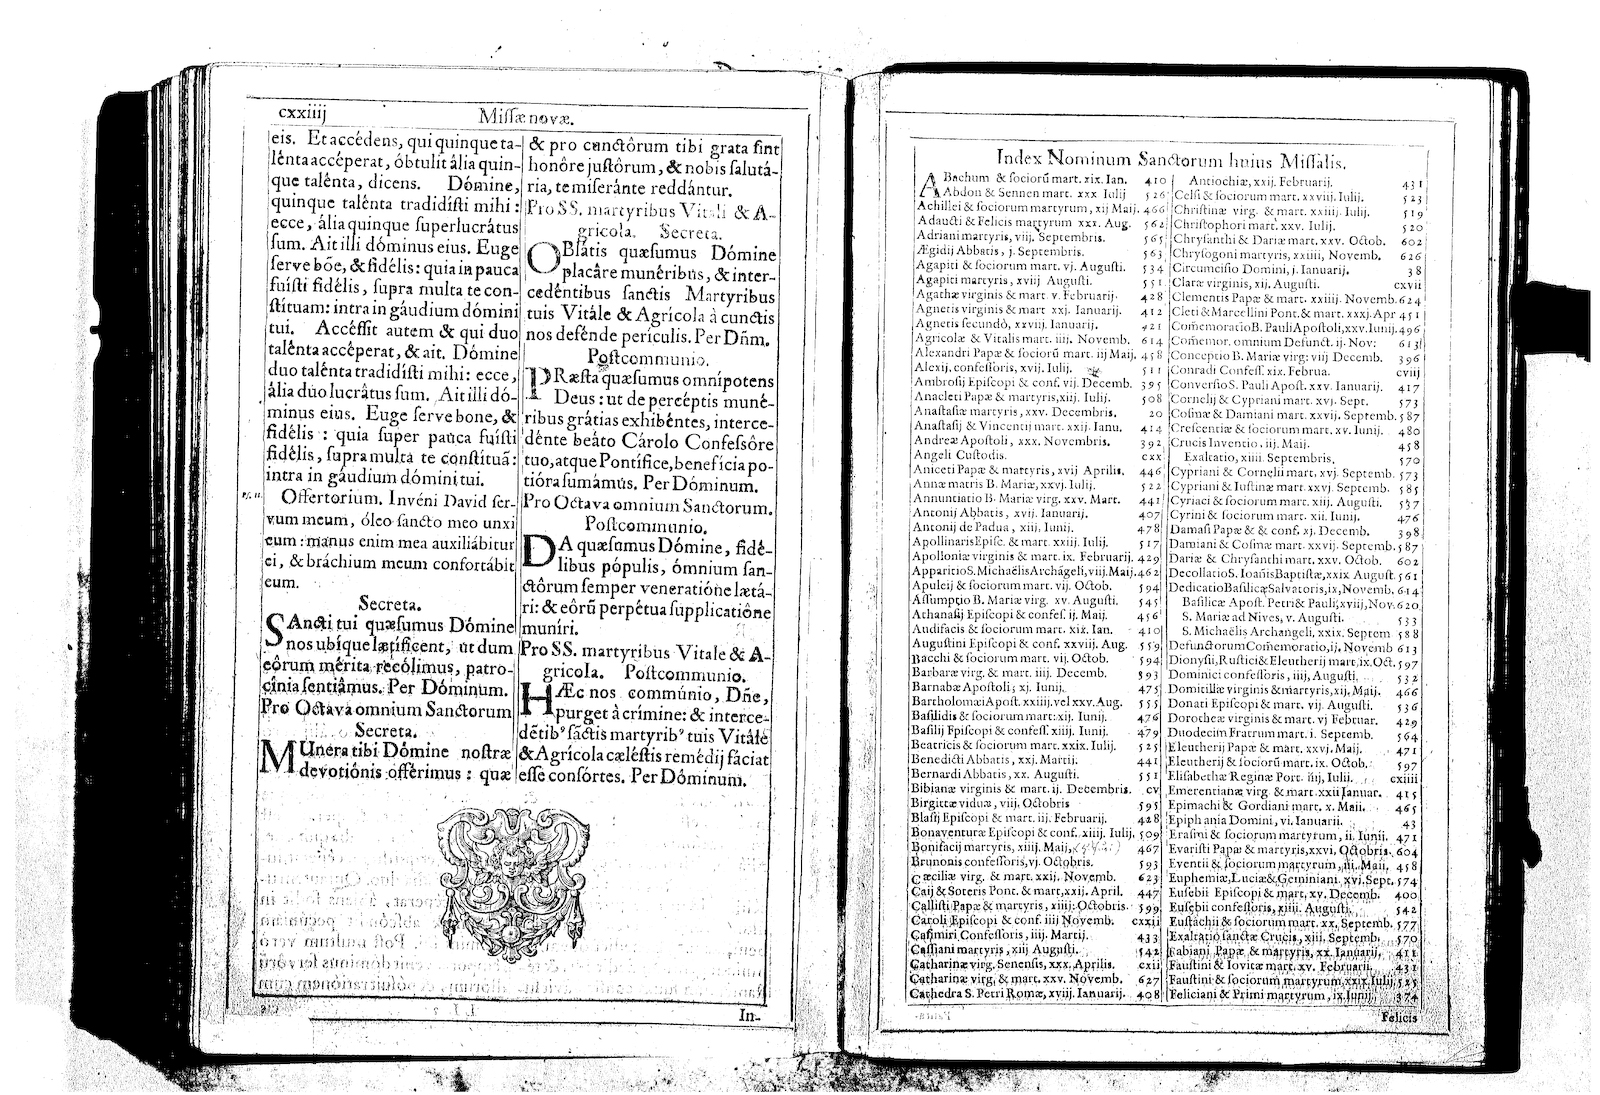 cxxiiij
Missæ novæ.
eis. Et accédens, qui quinque ta-
lénta accéperat, óbtulit ália quin-
que talénta, dicens. Dómine,
quinque talénta tradidísti mihi:
ecce, ália quinque superlucrâtus
sum. Ait illi dóminus eius. Euge
serve bōe, & fidélis: quia in pauca
fuísti fidélis, supra multa te con-
stítuam: intra in gáudium dómini
tui. Accéssit autem & qui duo
talénta accéperat, & ait. Dómine
duo talénta tradidísti mihi: ecce,
ália duo lucrâtus sum. Ait illi dó-
minus eius. Euge serve bone, &
fidélis: quia super pauca fuísti
fidélis, supra multa te constítuā:
intra in gáudium dómini tui.
Offertorium. Invéni David ser-
vum meum, óleo sancto meo unxi
eum: manus enim mea auxiliábitur
ei, & bráchium meum confortábit
eum.
Secreta.
SAncti tui quæsumus Dómine
nos ubíque lætíficent, ut dum
eôrum mérita recólimus, patro-
cínia sentiâmus. Per Dóminum.
Pro Octava omnium Sanctorum
Secreta.
MUnera tibi Dómine nostræ
devotiônis offérimus: quæ
& pro cunctôrum tibi grata sint
honôre justôrum, & nobis salutá-
ria, te miserânte reddántur.
Pro SS. martyribus Vitali & A-
gricola. Secreta.
OBlâtis quæsumus Dómine
placâre munéribus, & inter-
cedéntibus sanctis Martyribus
tuis Vitále & Agrícola à cunctis
nos defénde perículis. Per Dñm.
Postcommunio.
PRæsta quæsumus omnípotens
Deus: ut de percéptis muné-
ribus grátias exhibéntes, interce-
dénte beáto Cárolo Confessôre
tuo, atque Pontífice, benefícia po-
tióra sumámus. Per Dóminum.
Pro Octava omnium Sanctorum.
Postcommunio.
DA quæsumus Dómine, fidé-
libus pópulis, ómnium san-
ctórum semper veneratióne lætá-
ri: & eórū perpétua supplicatióne
muníri.
Pro SS. martyribus Vitale & A-
gricola. Postcommunio.
HÆc nos commúnio, Dñe,
purget à crímine: & interce-
détib⁹ sáctis martyrib⁹ tuis Vitále
& Agrícola cæléstis remédij fáciat
esse consórtes. Per Dóminum.
In-
Index Nominum Sanctorum huius Missalis.
ABachum & sociorū mart. xix. Ian. 410
Abdon & Sennen mart. xxx Iulij 526
Achillei & sociorum martyrum, xij Maij. 466
Adaucti & Felicis martyrum xxx. Aug. 562
Adriani martyris, viij. Septembris. 565
Ægidij Abbatis, j. Septembris. 563
Agapiti & sociorum mart. vj. Augusti. 534
Agapiti martyris, xviij Augusti. 551
Agathæ virginis & mart. v. Februarij. 428
Agnetis virginis & mart xxj. Ianuarij. 412
Agnetis secundò, xxviij. Ianuarij. 421
Agricolæ & Vitalis mart. iiij. Novemb. 614
Alexandri Papæ & sociorū mart. iij Maij. 458
Alexij, confessoris, xvij. Iulij. 511
Ambrosij Episcopi & conf. vij. Decemb. 395
Anacleti Papæ & martyris, xiij. Iulij. 508
Anastasiæ martyris, xxv. Decembris. 20
Anastasij & Vincentij mart. xxij. Ianu. 414
Andreæ Apostoli, xxx. Novembris. 392
Angeli Custodis. cxx
Aniceti Papæ & martyris, xvij Aprilis. 446
Annæ matris B. Mariæ, xxvj. Iulij. 522
Annunciatio B. Mariæ virg. xxv. Mart. 441
Antonij Abbatis, xvij. Ianuarij. 407
Antonij de Padua, xiij. Iunij. 478
Apollinaris Episc. & mart. xxiij. Iulij. 517
Apolloniæ virginis & mart. ix. Februarij. 429
Apparitio S. Michaëlis Archágeli, viij. Maij. 462
Apuleij & sociorum mart. vij. Octob. 594
Assumptio B. Mariæ virg. xv. Augusti. 545
Athanasij Episcopi & confes. ij. Maij. 456
Audifacis & sociorum mart. xix. Ian. 410
Augustini Episcopi & conf. xxviij. Aug. 559
Bacchi & sociorum mart. vij. Octob. 594
Barbaræ virg. & mart. iiij. Decemb. 393
Barnabæ Apostoli; xj. Iunij. 475
Bartholomæi Apost. xxiiij. vel xxv. Aug. 555
Basilidis & sociorum mart: xij. Iunij. 476
Basilij Episcopi & confess. xiij. Iunij. 479
Beatricis & sociorum mart. xxix. Iulij. 525
Benedicti Abbatis, xxj. Martij. 441
Bernardi Abbatis, xx. Augusti. 551
Bibianæ virginis & mart. ij. Decembris. cv
Birgittæ viduæ, viij. Octobris 595
Blasij Episcopi & mart. iij. Februarij. 428
Bonaventuræ Episcopi & conf. xiiij. Iulij. 509
Bonifacij martyris, xiiij. Maij, 467
Brunonis confessoris, vj. Octobris. 593
Cæciliæ virg. & mart. xxij. Novemb. 623
Caij & Soteris Pont. & mart, xxij. April. 447
Callisti Papæ & martyris, xiiij: Octobris. 599
Caroli Episcopi & conf. iiij Novemb. cxxii
Casimiri Confessoris, iiij. Martij. 433
Cassiani martyris, xiij Augusti. 542
Catharinæ virg. Senensis, xxx. Aprilis. cxii
Catharinæ virg, & mart. xxv. Novemb. 627
Cathedra S. Petri Romæ, xviij. Ianuarij. 408
Antiochiæ, xxij. Februarij. 431
Celsi & sociorum mart. xxviij. Iulij. 523
Christinæ virg. & mart. xxiiij. Iulij. 519
Christophori mart. xxv. Iulij. 520
Chrysanthi & Dariæ mart. xxv. Octob. 602
Chrysogoni martyris, xxiiij, Novemb. 626
Circumcisio Domini, j. Ianuarij. 38
Claræ virginis, xij. Augusti. cxvii
Clementis Papæ & mart. xxiij. Novemb. 624
Cleti & Marcellini Pont. & mart. xxxj. Apr 451
Cōmemoratio B. Pauli Apostoli, xxv. Iunij. 496
Cōmemor. omnium Defunct. ij. Nov: 613
Conceptio B. Mariæ virg: viij Decemb. 396
Conradi Confess. xix. Februa. cviij
Conversio S. Pauli Apost. xxv. Ianuarij. 417
Cornelij & Cypriani mart. xvj. Sept. 573
Cosmæ & Damiani mart. xxvij. Septemb. 587
Crescentiæ & sociorum mart. xv. Iunij. 480
Crucis Inventio. iij. Maij. 458
Exaltatio, xiiij Septembris. 570
Cypriani & Cornelij mart. xvj. Septemb. 573
Cypriani & Iustinæ mart. xxvj. Septemb. 585
Cyriaci & sociorum mart. xiij. Augusti. 537
Cyrini & sociorum mart. xii. Iunij. 476
Damasi Papæ & & conf. xj. Decemb. 398
Damiani & Cosmæ mart. xxvij. Septemb. 587
Dariæ & Chrysanthi mart. xxv. Octob. 602
Decollatio S. Ioānis Baptistæ, xxix August. 561
Dedicatio Basilicæ Salvatoris, ix, Novemb. 614
Basilicæ Apost. Petri & Pauli, xviij, Nov. 620
S. Mariæ ad Nives, v. Augusti. 533
S. Michaëlis Archangeli, xxix. Septem 588
Defunctorum Comemoratio, ij. Novemb 613
Dionysii, Rustici & Eleutherij mart, ix. Oct. 597
Dominici confessoris, iiij, Augusti. 532
Domicillæ virginis & martyris, xij. Maij. 466
Donati Episcopi & mart. vij. Augusti. 536
Dorotheæ virginis & mart. vj Februar. 429
Duodecim Fratrum mart. i. Septemb. 564
Eleutherij Papæ & mart. xxvj. Maij. 471
Eleutherij & sociorū mart. ix. Octob. 597
Elisabethæ Reginæ Port. iiij, Iulii. cxiiii
Emerentianæ virg. & mart. xxii Ianuar. 415
Epimachi & Gordiani mart. x. Maii. 465
Epiphania Domini, vi. Ianuarii. 43
Erasmi & sociorum martyrum, ii. Iunii. 471
Evaristi Papæ & martyris, xxvi, Octobris. 604
Eventii & sociorum martyrum, iii. Maii. 458
Euphemiæ, Luciæ & Geminiani. xvi. Sept. 574
Eusebii Episcopi & mart. xv. Decemb. 400
Eusebii confessoris, xiiii. Augusti. 542
Eustachii & sociorum mart. xx. Septemb. 577
Exaltatio sanctæ Crucis, xiii, Septemb. 570
Fabiani Papæ & martyris, xx. Ianuarij. 411
Faustini & Iovitæ mart. xv. Februarii. 431
Faustini & sociorum martyrum, xxix Iulij, 525
Feliciani & Primi martyrum, ix. Iunij. 374
Felicis